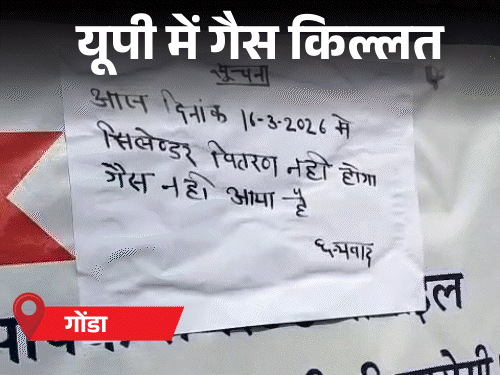 यूपी में गैस किल्लत
सूचना
आज दिनांक 16-3-2026 मे
सिलेण्डर वितरण नही होगा
गैस नही आया है
धन्यवाद
गोंडा